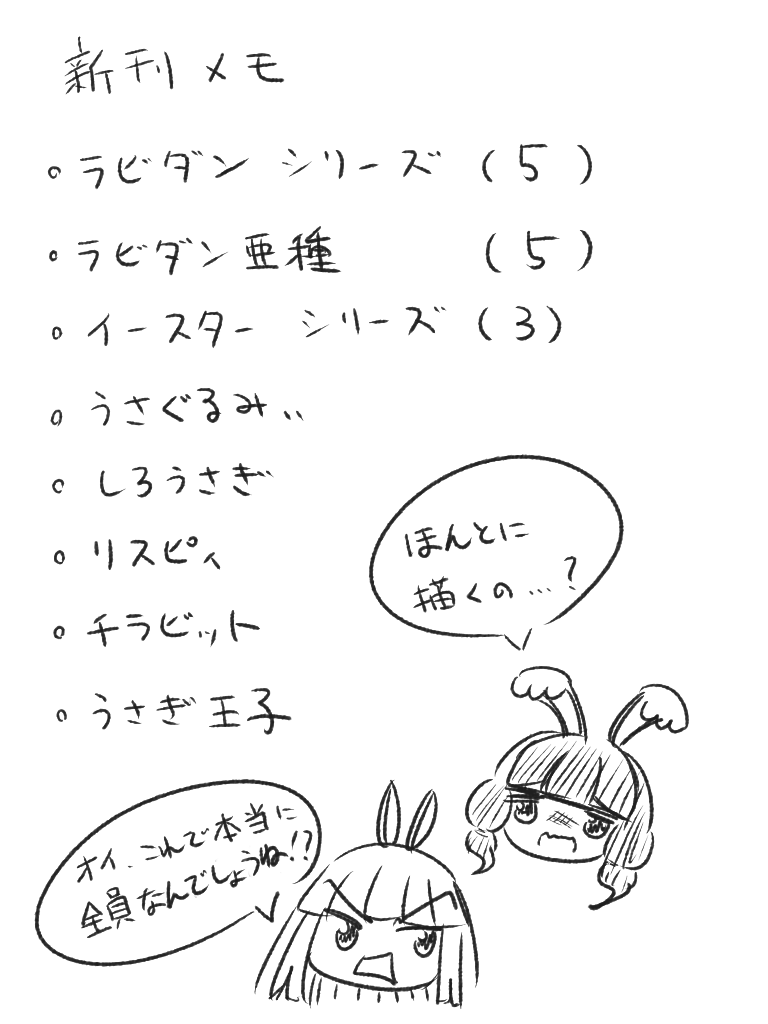 新刊メモ
。ラビダン シリーズ (5)
。ラビダン亜種 (5)
。イースター シリーズ (3)
。うさぐるみ､､
。しろうさぎ
。リスピィ
。チラビット
。うさぎ王子
ほんとに
描くの…?
オイ、これで本当に
全員なんでしょうね!?